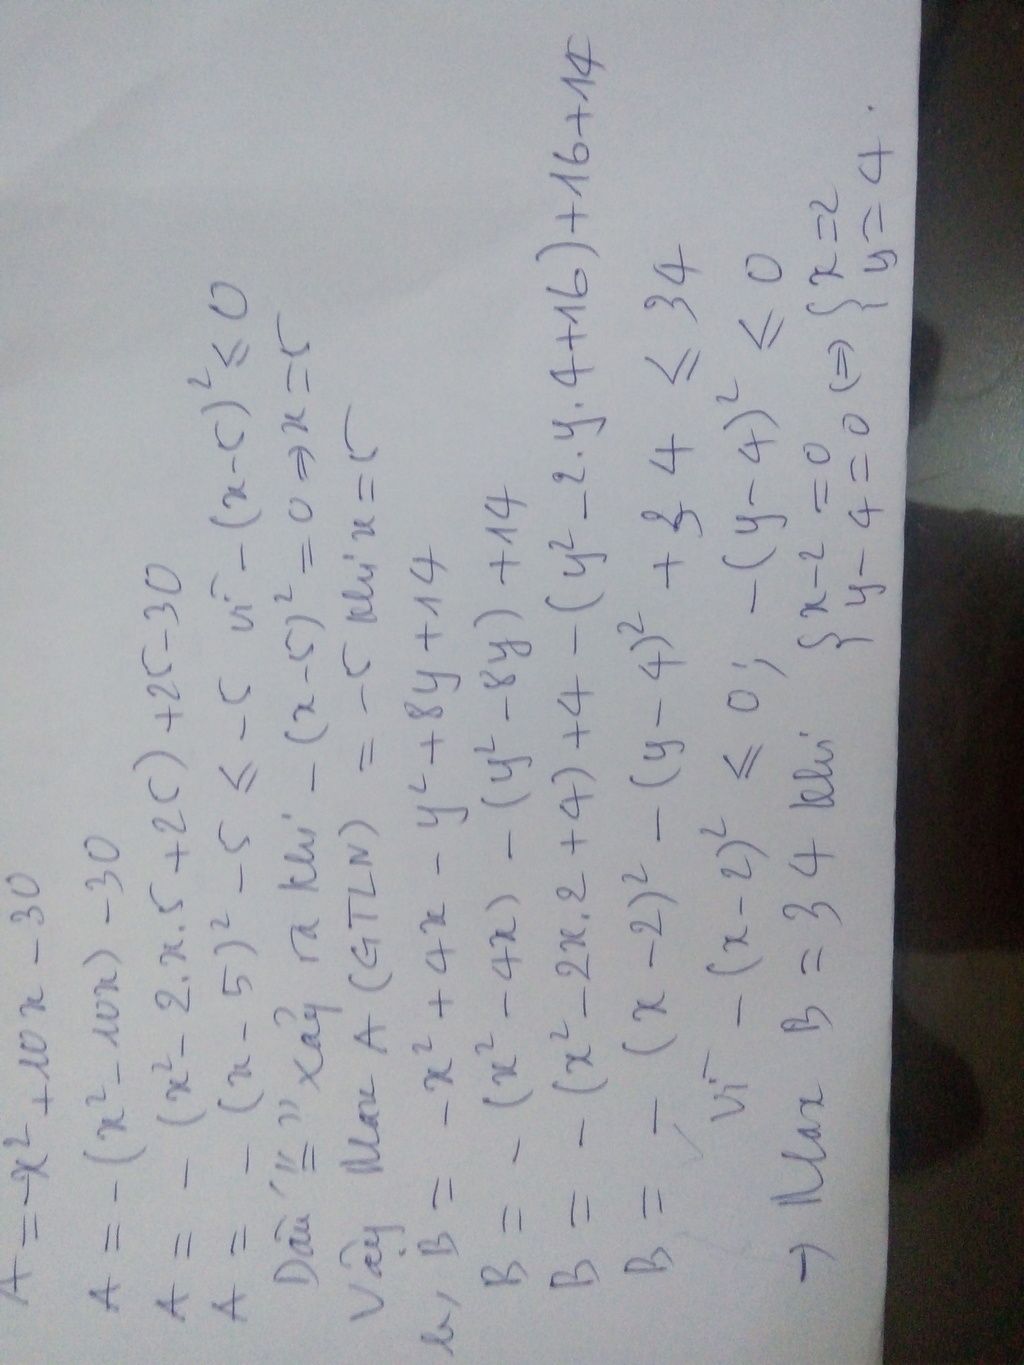 A = -x² + 10x - 30
A = - (x² - 10x) - 30
A = - (x² - 2.x.5 + 25) + 25 - 30
A = - (x - 5)² - 5 ≤ -5 vì - (x-5)² ≤ 0
Dấu "=" xảy ra khi - (x-5)² = 0 ⇒ x = 5
Vậy Max A (GTLN) = -5 khi x = 5
b, B = -x² + 4x - y² + 8y + 14
B = - (x² - 4x) - (y² - 8y) + 14
B = - (x² - 2x.2 + 4) + 4 - (y² - 2.y.4 + 16) + 16 + 14
B = - (x - 2)² - (y - 4)² + 34 ≤ 34
vì - (x - 2)² ≤ 0; - (y - 4)² ≤ 0
→ Max B = 34 khi { x - 2 = 0 ⇔ { x = 2
y - 4 = 0 y = 4.